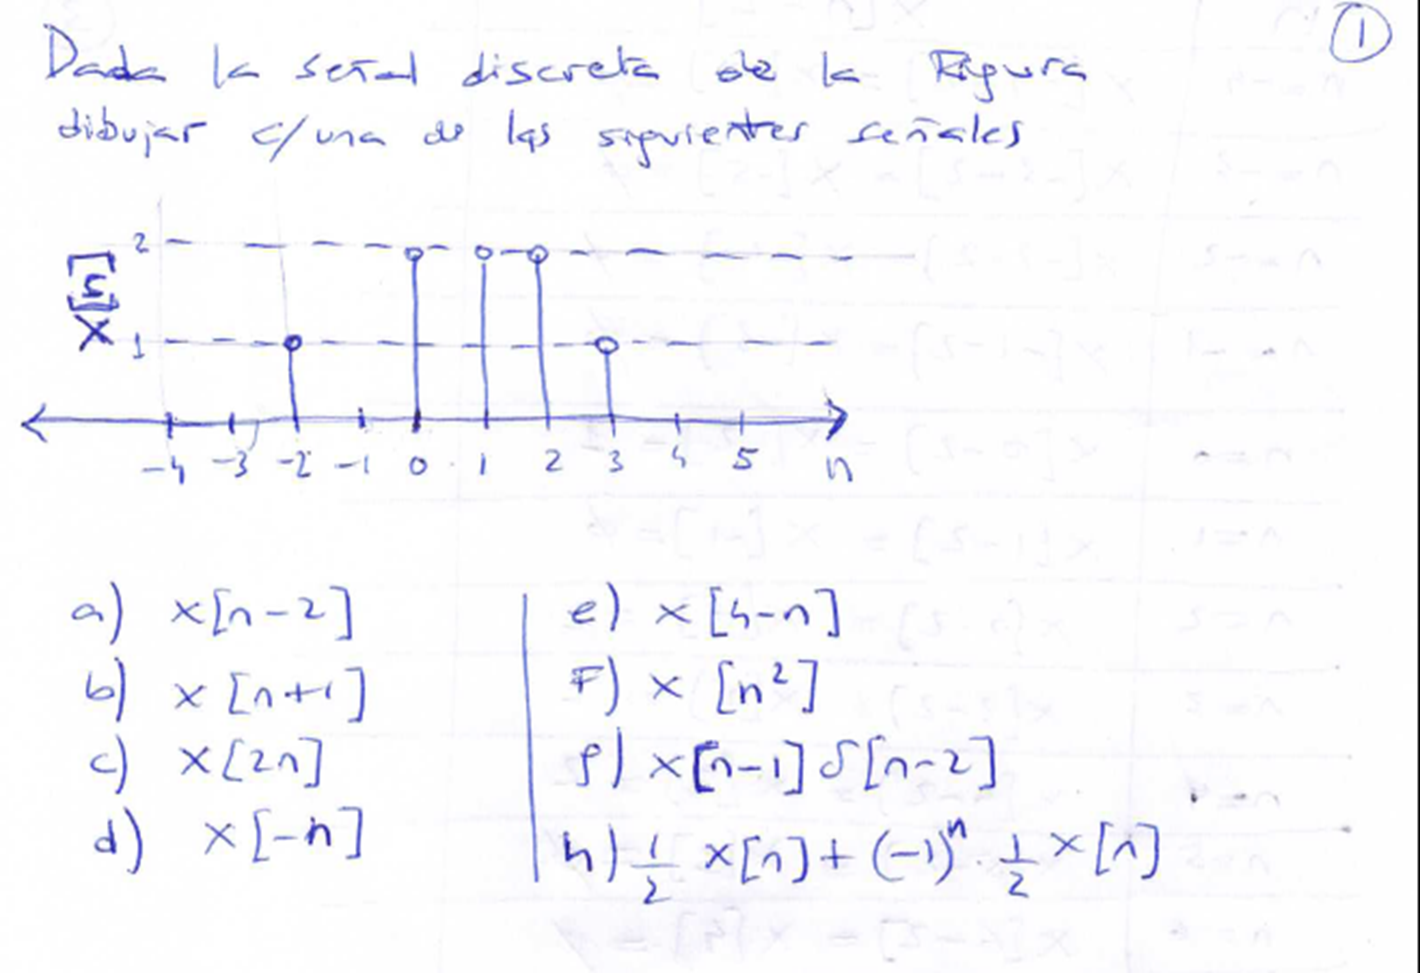 ①
Dada la señal discreta de la Figura
dibujar c/una de las siguientes señales
2
1
X[n]
-4 -3 -2 -1 0 1 2 3 4 5 n
a) x[n-2]
b) x[n+1]
c) x[2n]
d) x[-n]
e) x[4-n]
F) x[n²]
g) x[n-1] δ[n-2]
h) 1/2 x[n] + (-1)ⁿ · 1/2 x[n]